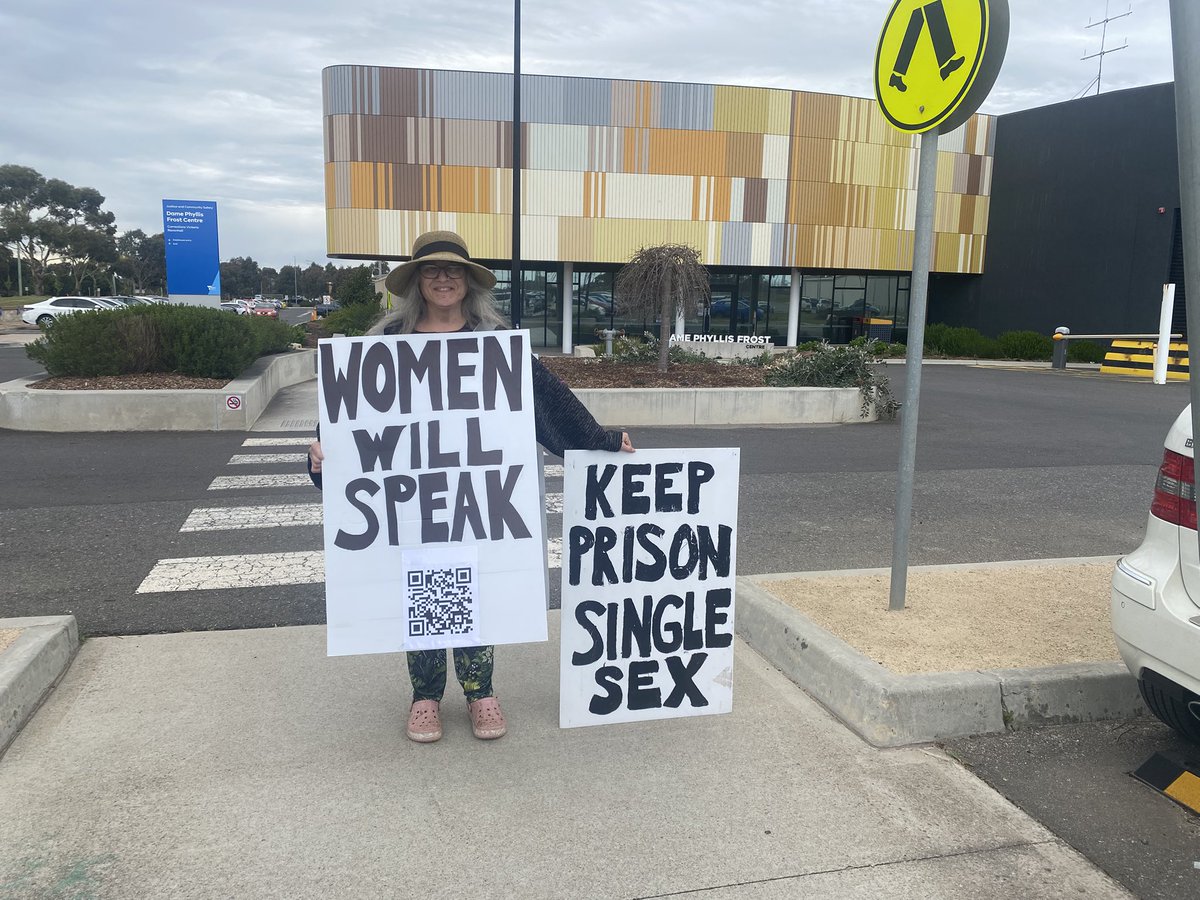 Justice and Community Safety
Dame Phyllis
Frost Centre
Corrections Victoria
Ravenhall
AME PHYLLIS FROST
CENTRE
WOMEN
WILL
SPEAK
KEEP
PRISON
SINGLE
SEX